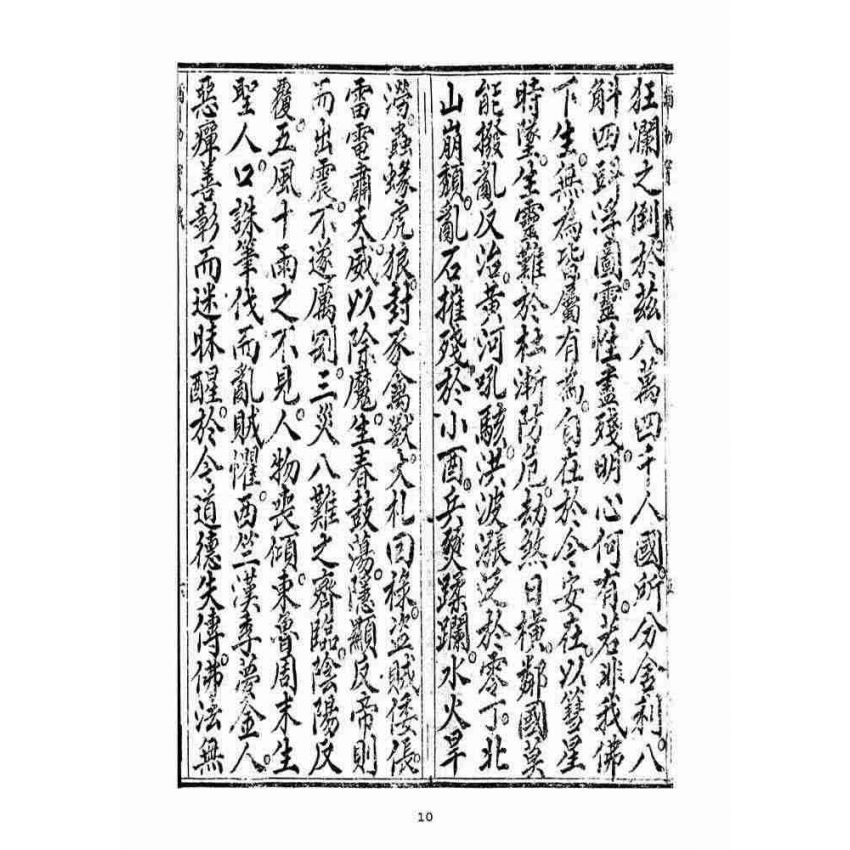 狂瀾之倒。於茲八萬四千人國。所分舍利。八
斛四斗浮圖。靈性盡殘。明心何有。若非我佛
下生。無為皆屬有為。自在於今安在。以彗星
時墜。生靈難於杜漸防危。劫煞日橫。鄰國莫
能撥亂反治。黃河吼駭。洪波漲泛於零丁。北
山崩頹。亂石摧殘於小酉。兵燹蹂躪。水火旱
澇。蟲蝝虎狼。封豕禽獸。夭札回祿。盜賊倭倀。
雷電肅天威以除魔。生春鼓蕩。隱顯反帝則
而出震。不遂厲劉。三災八難之齊臨。陰陽反
覆。五風十雨之不見。人物喪傾。東魯周末生
聖人。口誅筆伐而亂賊懼。西竺漢季夢金人。
惡癉善彰而迷昧醒。於今道德失傳。佛法無
10